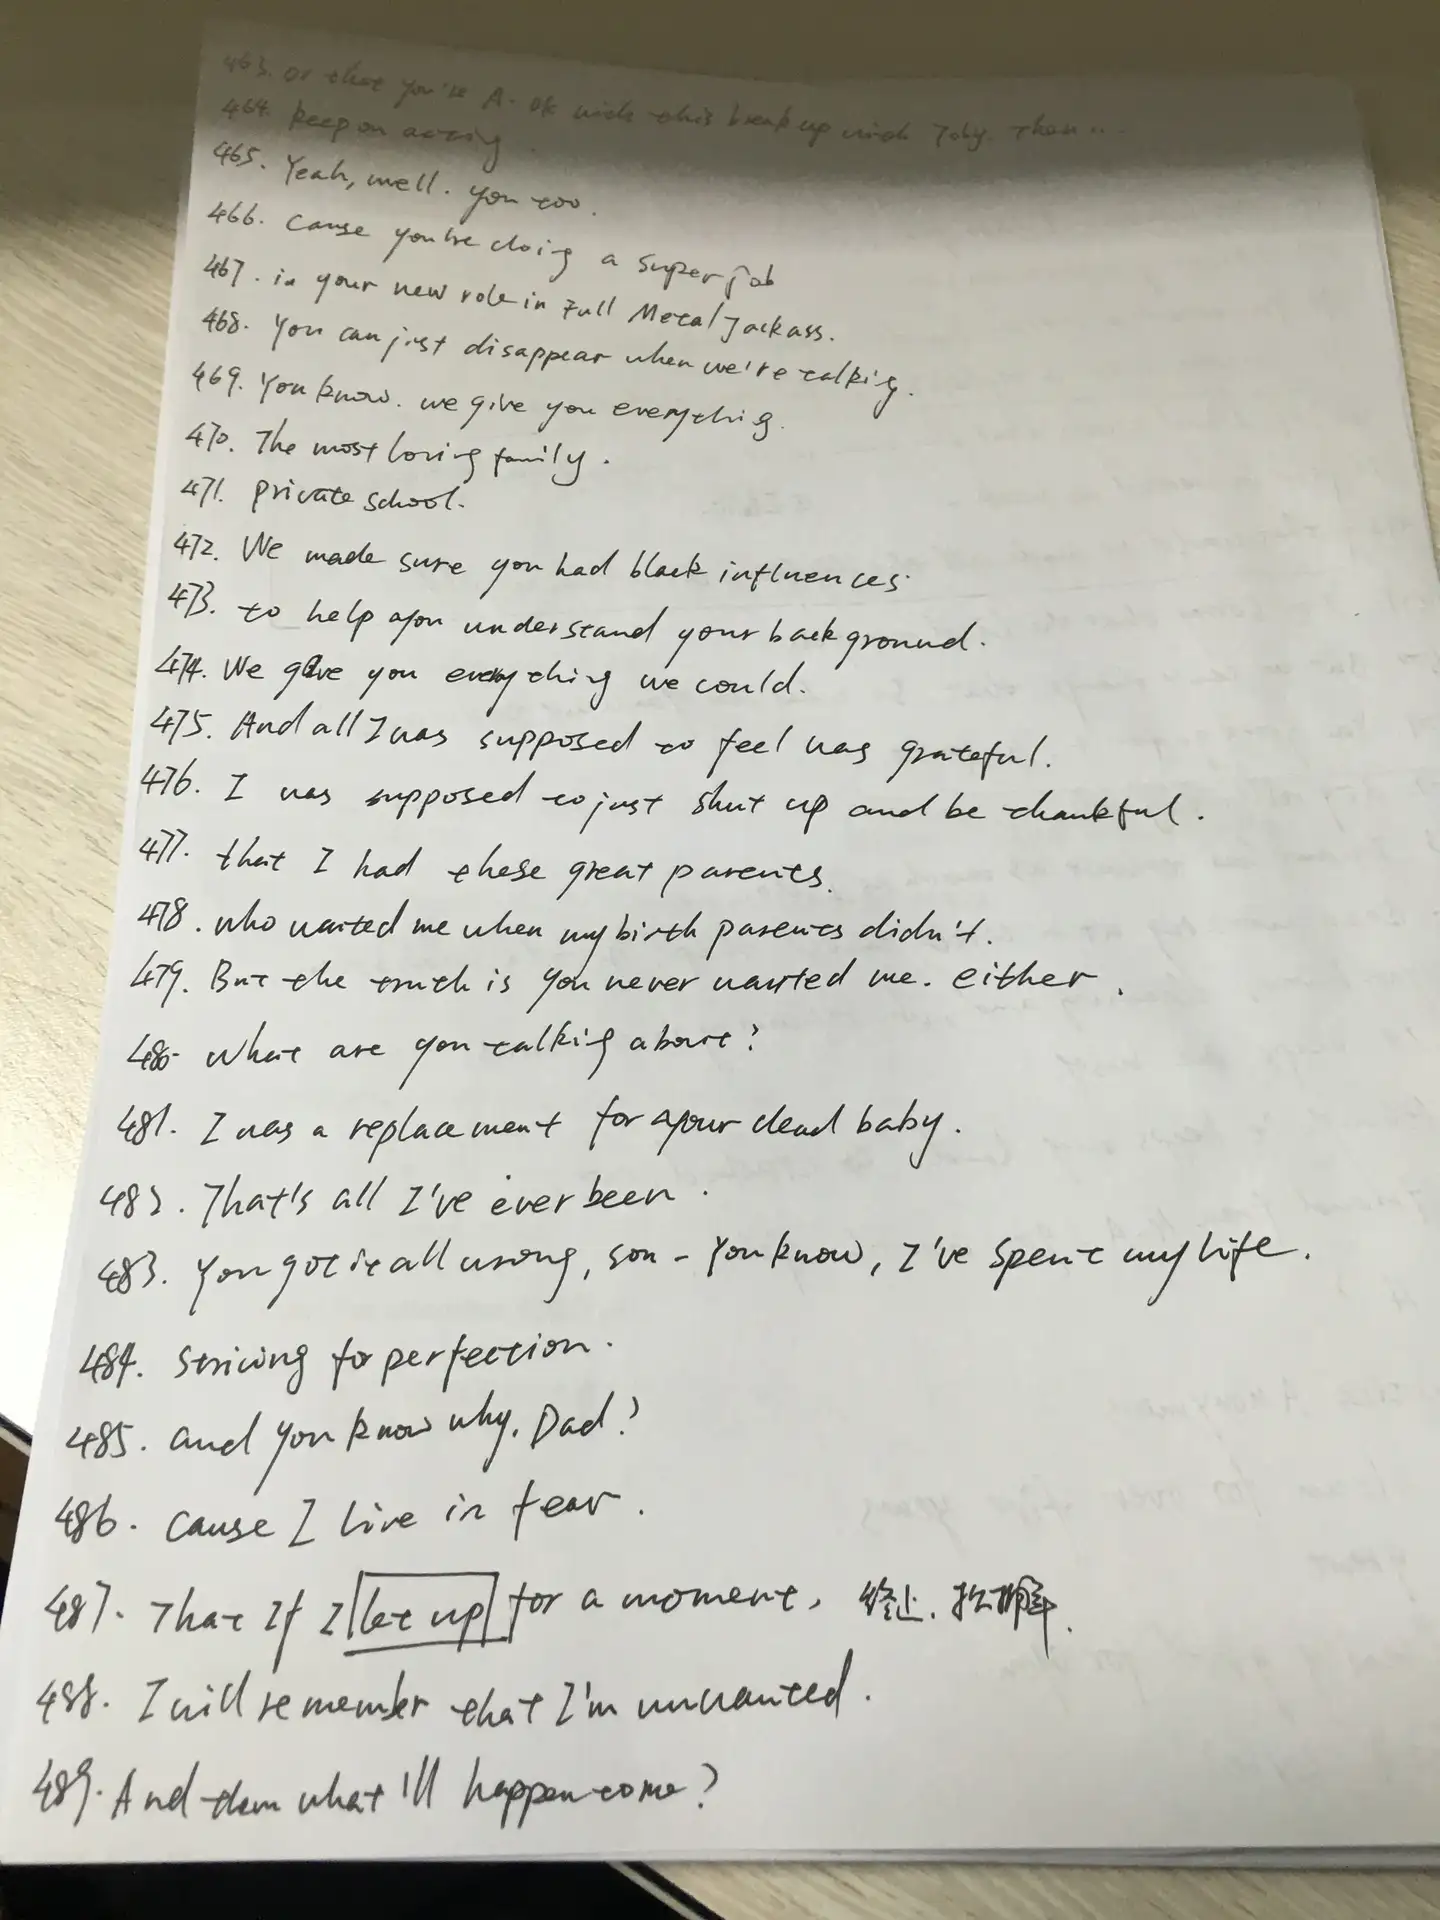 463. or that you're A-ok with this break up with Toby. Then...
464. keep on acting.
465. Yeah, well. you too.
466. Cause you're doing a super job
467. in your new role in Full Metal Jackass.
468. You can just disappear when we're talking.
469. You know. we give you everything.
470. The most loving family.
471. private school.
472. We made sure you had black influences.
473. to help you understand your background.
474. We gave you everything we could.
475. And all I was supposed to feel was grateful.
476. I was supposed to just shut up and be thankful.
477. that I had these great parents.
478. who wanted me when my birth parents didn't.
479. But the truth is you never wanted me. either.
480. what are you talking about?
481. I was a replacement for your dead baby.
482. That's all I've ever been.
483. You got it all wrong, son - You know, I've spent my life.
484. striving for perfection.
485. and you know why. Dad?
486. cause I live in fear.
487. That If I let up for a moment, 终止.
488. I will remember that I'm unwanted.
489. And then what'll happen to me?